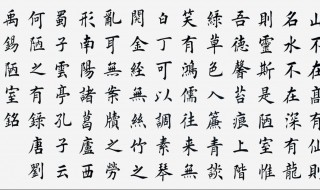 山不在高有仙則
名水不在深有龍
則靈斯是陋室惟
吾德馨苔痕上階
綠草色入簾青談
笑有鴻儒往來無
白丁可以調素琴
閱金經無絲竹之
亂耳無案牘之勞
形南陽諸葛廬西
蜀子雲亭孔子云
何陋之有錄唐劉
禹錫陋室銘